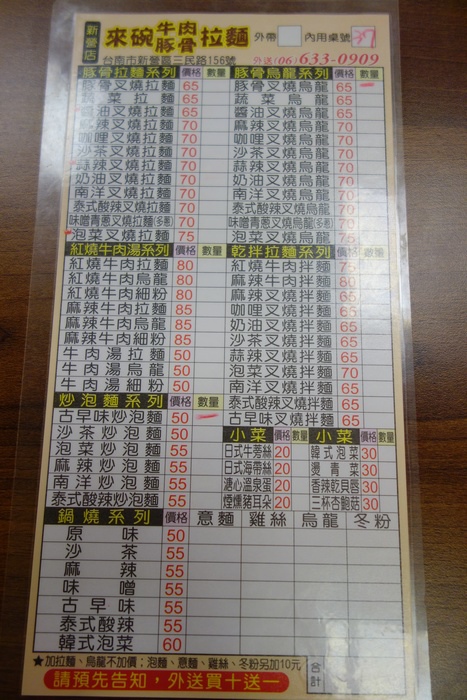 新營店 來碗 牛肉 豚骨 拉麵 外帶 內用桌號
台南市新營區三民路156號 外送(06)633-0909
豚骨拉麵系列 價格 數量
豚骨叉燒拉麵 65
蔬菜拉麵 65
醬油叉燒拉麵 65
麻辣叉燒拉麵 70
咖哩叉燒拉麵 70
沙茶叉燒拉麵 70
蒜辣叉燒拉麵 70
奶油叉燒拉麵 70
南洋叉燒拉麵 70
泰式酸辣叉燒拉麵 70
味噌青蔥叉燒拉麵(多蔥) 70
泡菜叉燒拉麵 75
豚骨烏龍系列 價格 數量
豚骨叉燒烏龍 65
蔬菜烏龍 65
醬油叉燒烏龍 65
麻辣叉燒烏龍 70
咖哩叉燒烏龍 70
沙茶叉燒烏龍 70
蒜辣叉燒烏龍 70
奶油叉燒烏龍 70
南洋叉燒烏龍 70
泰式酸辣叉燒烏龍 70
味噌青蔥叉燒烏龍(多蔥) 70
泡菜叉燒烏龍 75
紅燒牛肉湯系列 價格 數量
紅燒牛肉拉麵 80
紅燒牛肉烏龍 80
紅燒牛肉細粉 80
麻辣牛肉拉麵 85
麻辣牛肉烏龍 85
麻辣牛肉細粉 85
牛肉湯拉麵 50
牛肉湯烏龍 50
牛肉湯細粉 50
乾拌拉麵系列 價格 數量
紅燒牛肉拌麵 75
麻辣牛肉拌麵 80
麻辣叉燒拌麵 65
咖哩叉燒拌麵 65
奶油叉燒拌麵 65
沙茶叉燒拌麵 65
蒜辣叉燒拌麵 65
泡菜叉燒拌麵 70
南洋叉燒拌麵 65
泰式酸辣叉燒拌麵 65
古早味叉燒拌麵 65
炒泡麵系列 價格 數量
古早味炒泡麵 50
沙茶炒泡麵 50
泡菜炒泡麵 55
麻辣炒泡麵 55
南洋炒泡麵 55
泰式酸辣炒泡麵 55
小菜 價格 數量 小菜 價格 數量
日式牛蒡絲 20 韓式泡菜 30
日式海帶絲 20 燙青菜 30
溏心溫泉蛋 20 香辣乾貝唇 30
煙燻豬耳朵 20 三杯杏鮑菇 30
鍋燒系列 價格 意麵 雞絲 烏龍 冬粉
原味 50
沙茶 55
麻辣 55
味噌 55
古早味 55
泰式酸辣 55
韓式泡菜 60
★加拉麵、烏龍不加價；泡麵、意麵、雞絲、冬粉另加10元 合計
請預先告知，外送買十送一